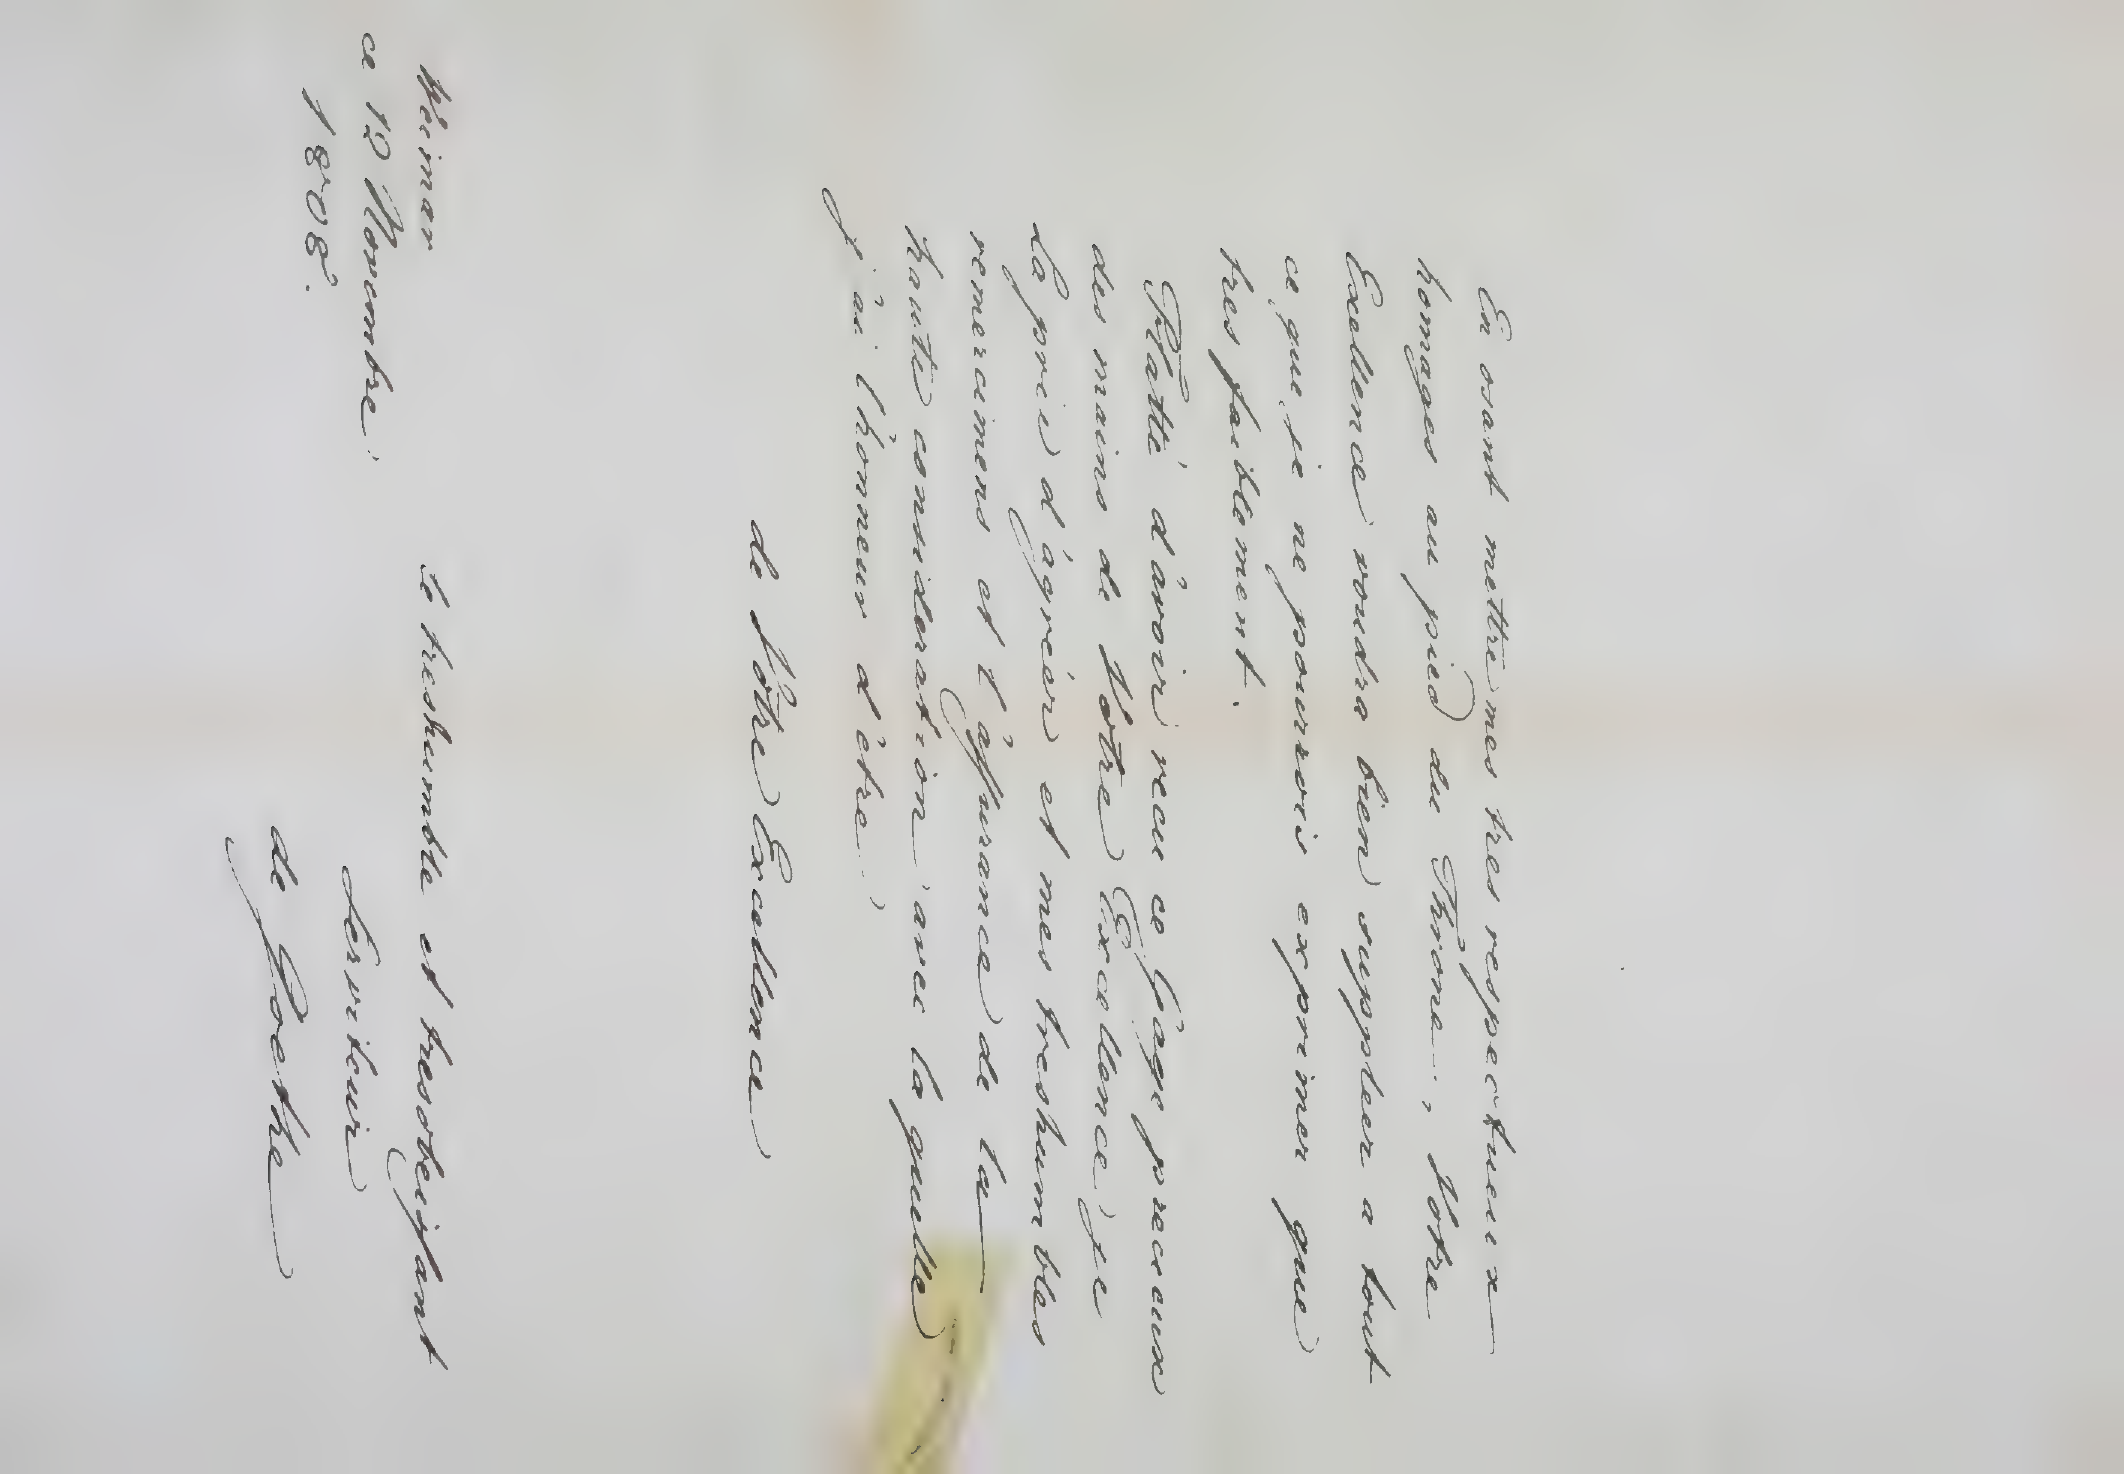 En osant mettre mes tres respectueux
homages au pied du Throne, Votre
Excellence voudra bien suppleer a tout
ce que je ne pourrois exprimer que
tres faiblement.
Flatté d'avoir recu ce Gage precieux
des mains de Votre Excellence je
La prie d'agreér et mes treshumbles
remercimens et l'assurance de la
haute consideration avec la quelle
j'ai l'honneur d'etre
de Vôtre Excellence
le treshumble et tresobeissant
Serviteur
de Goethe
Weimar
ce 12 Novembre
1808.